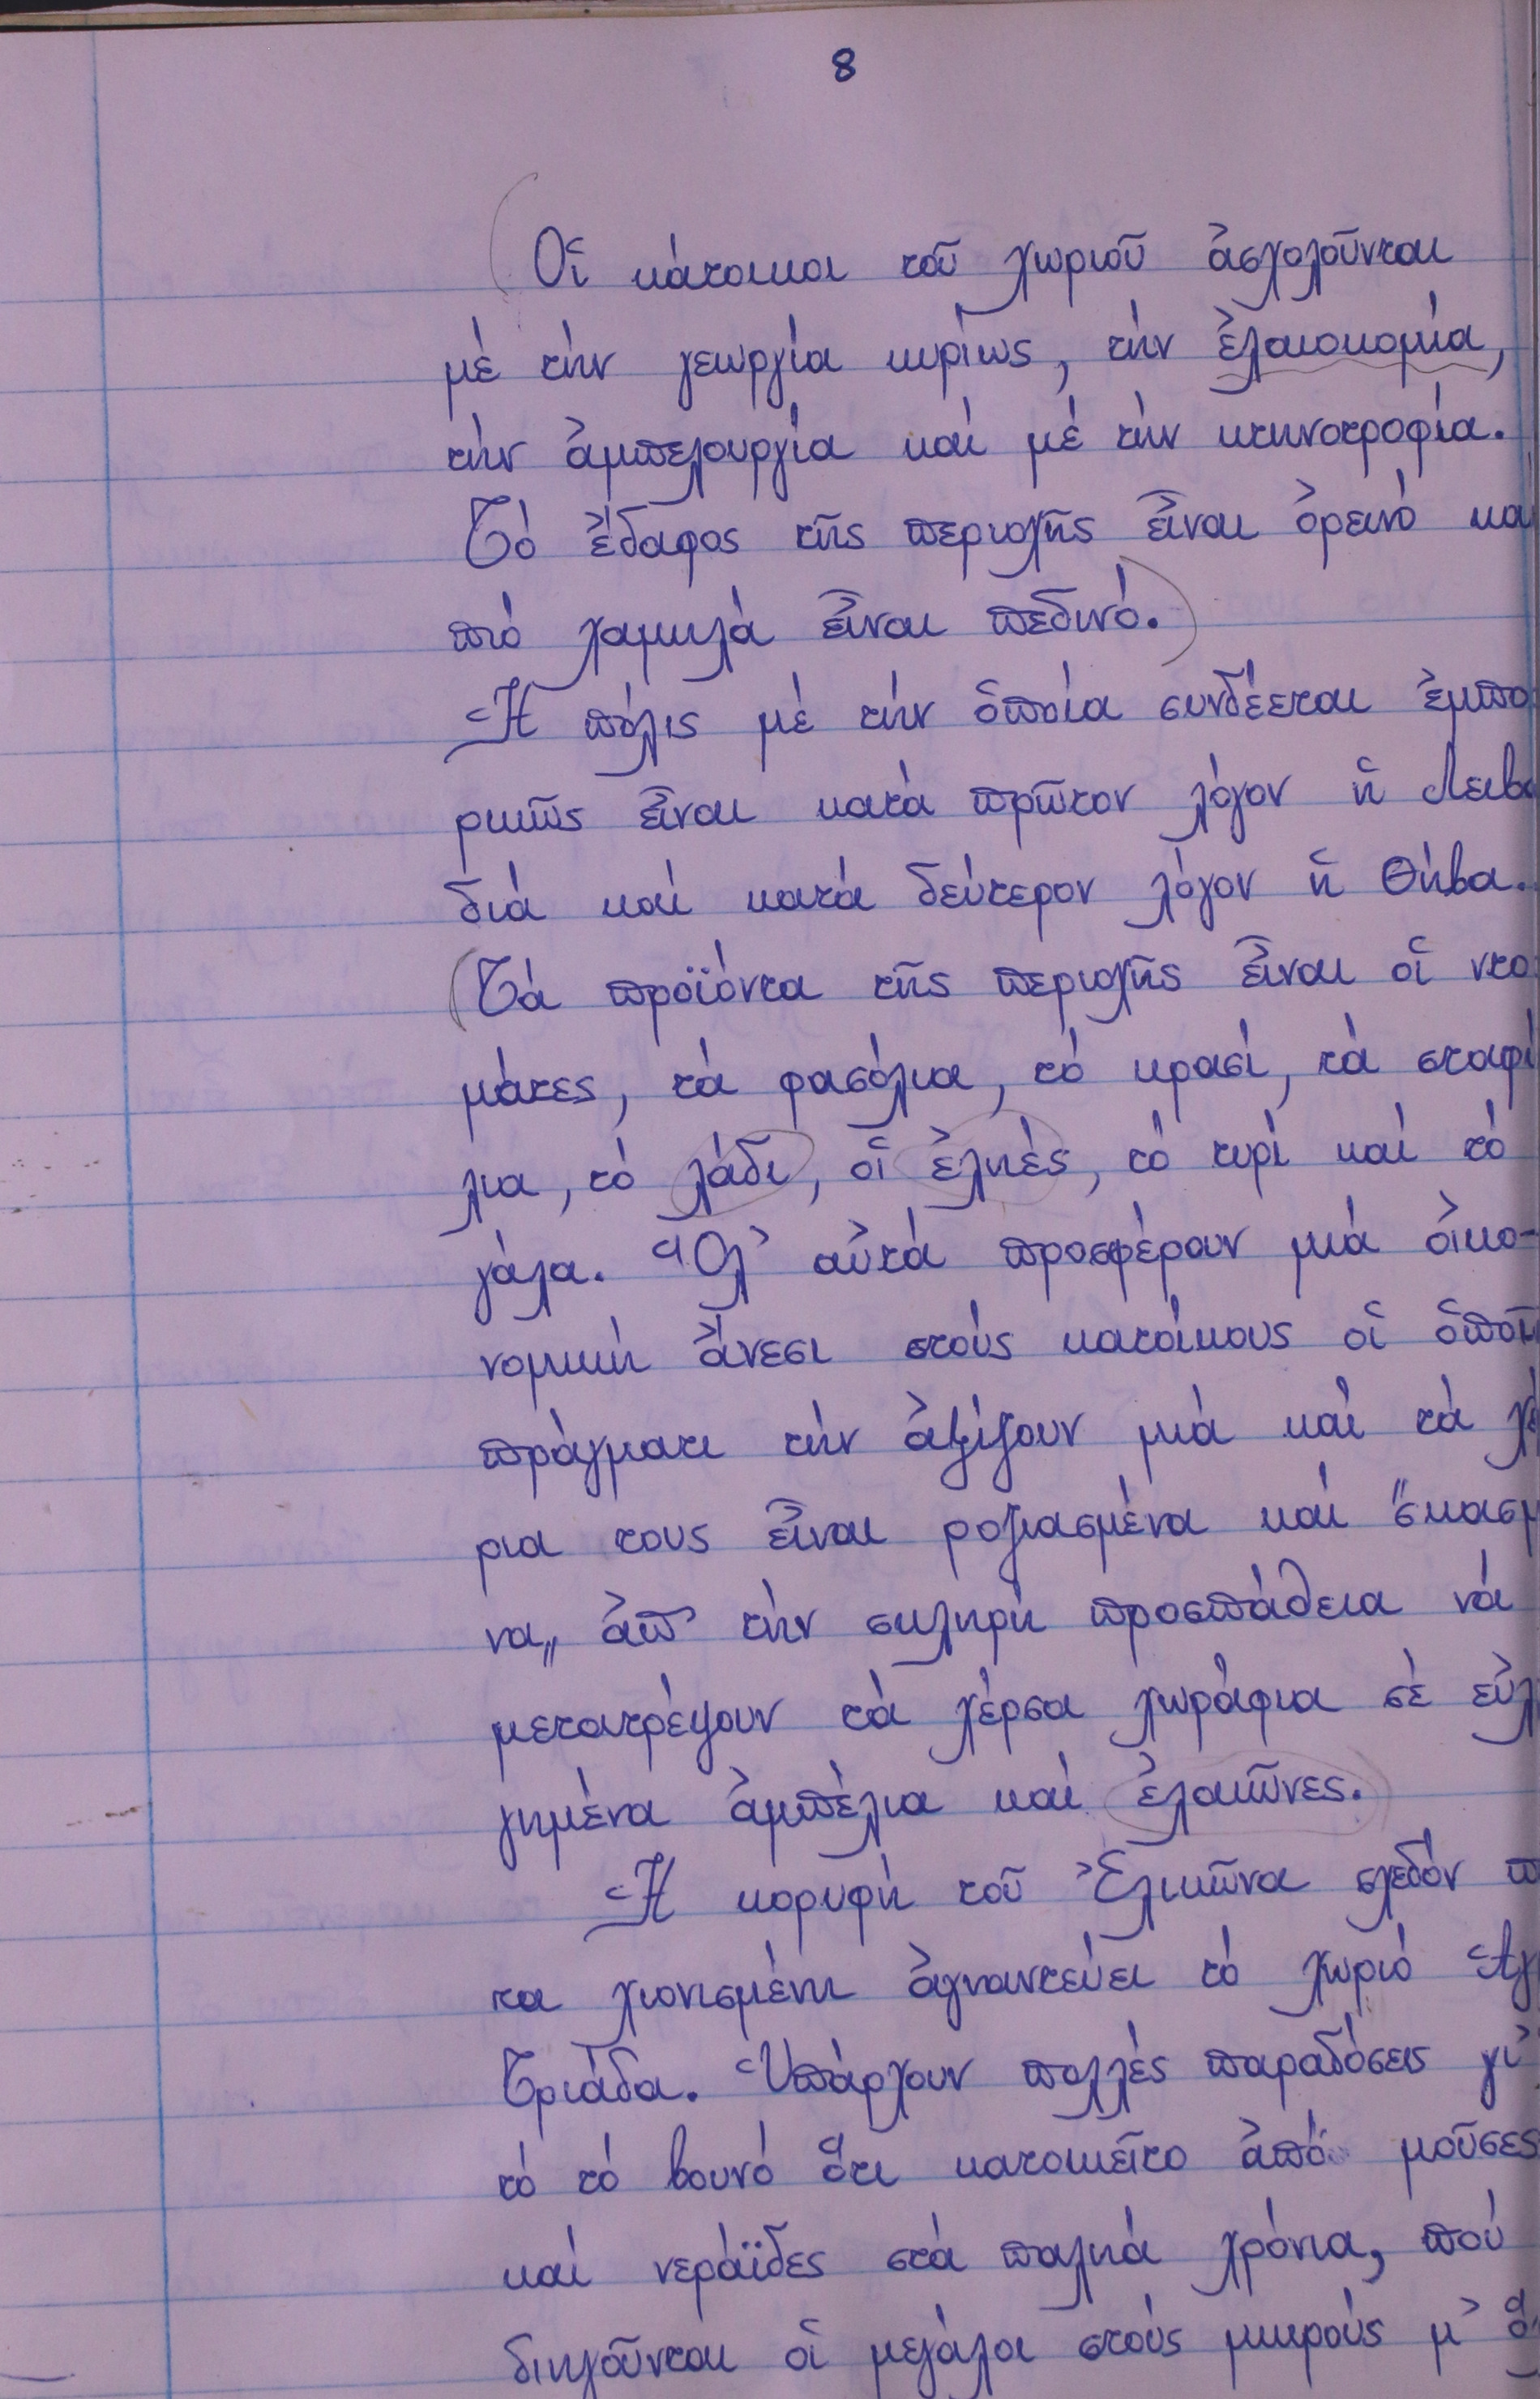 8
Οἱ κάτοικοι τοῦ χωριοῦ ἀσχολοῦνται
μέ τήν γεωργία κυρίως, τήν ἐλαιοκομία,
τήν ἀμπελουργία καί μέ τήν κτηνοτροφία.
Τό ἔδαφος τῆς περιοχῆς εἶναι ὀρεινό κα
πιό χαμηλά εἶναι πεδινό.
Ἡ πόλις μέ τήν ὁποία συνδέεται ἐμπο
ρικῶς εἶναι κατά πρῶτον λόγον ἡ Λειβα
διά καί κατά δεύτερον λόγον ἡ Θήβα.
Τά προϊόντα τῆς περιοχῆς εἶναι οἱ ντο
μάτες, τά φασόλια, τό κρασί, τά σταφύ
λια, τό λάδι, οἱ ἐλιές, τό τυρί καί τό
γάλα. Ὅλ' αὐτά προσφέρουν μιά οἰκο-
νομική ἄνεσι στούς κατοίκους οἱ ὁποῖ
πράγματι τήν ἀξίζουν μιά καί τά χέ
ρια τους εἶναι ροζιασμένα καί "σκασμ
να„ ἀπ' τήν σκληρή προσπάθεια νά
μετατρέψουν τά χέρσα χωράφια σέ εὐλ
γημένα ἀμπέλια καί ἐλαιῶνες.
Ἡ κορυφή τοῦ Ἐλικῶνα σχεδόν π
τα χιονισμένη ἀγναντεύει τό χωριό Ἁγ
Τριάδα. Ὑπάρχουν πολλές παραδόσεις γι'
τό τό βουνό ὅτι κατοικεῖτο ἀπό μοῦσες
καί νεράϊδες στά παληά χρόνια, πού
διηγοῦνται οἱ μεγάλοι στούς μικρούς μ' ὅ